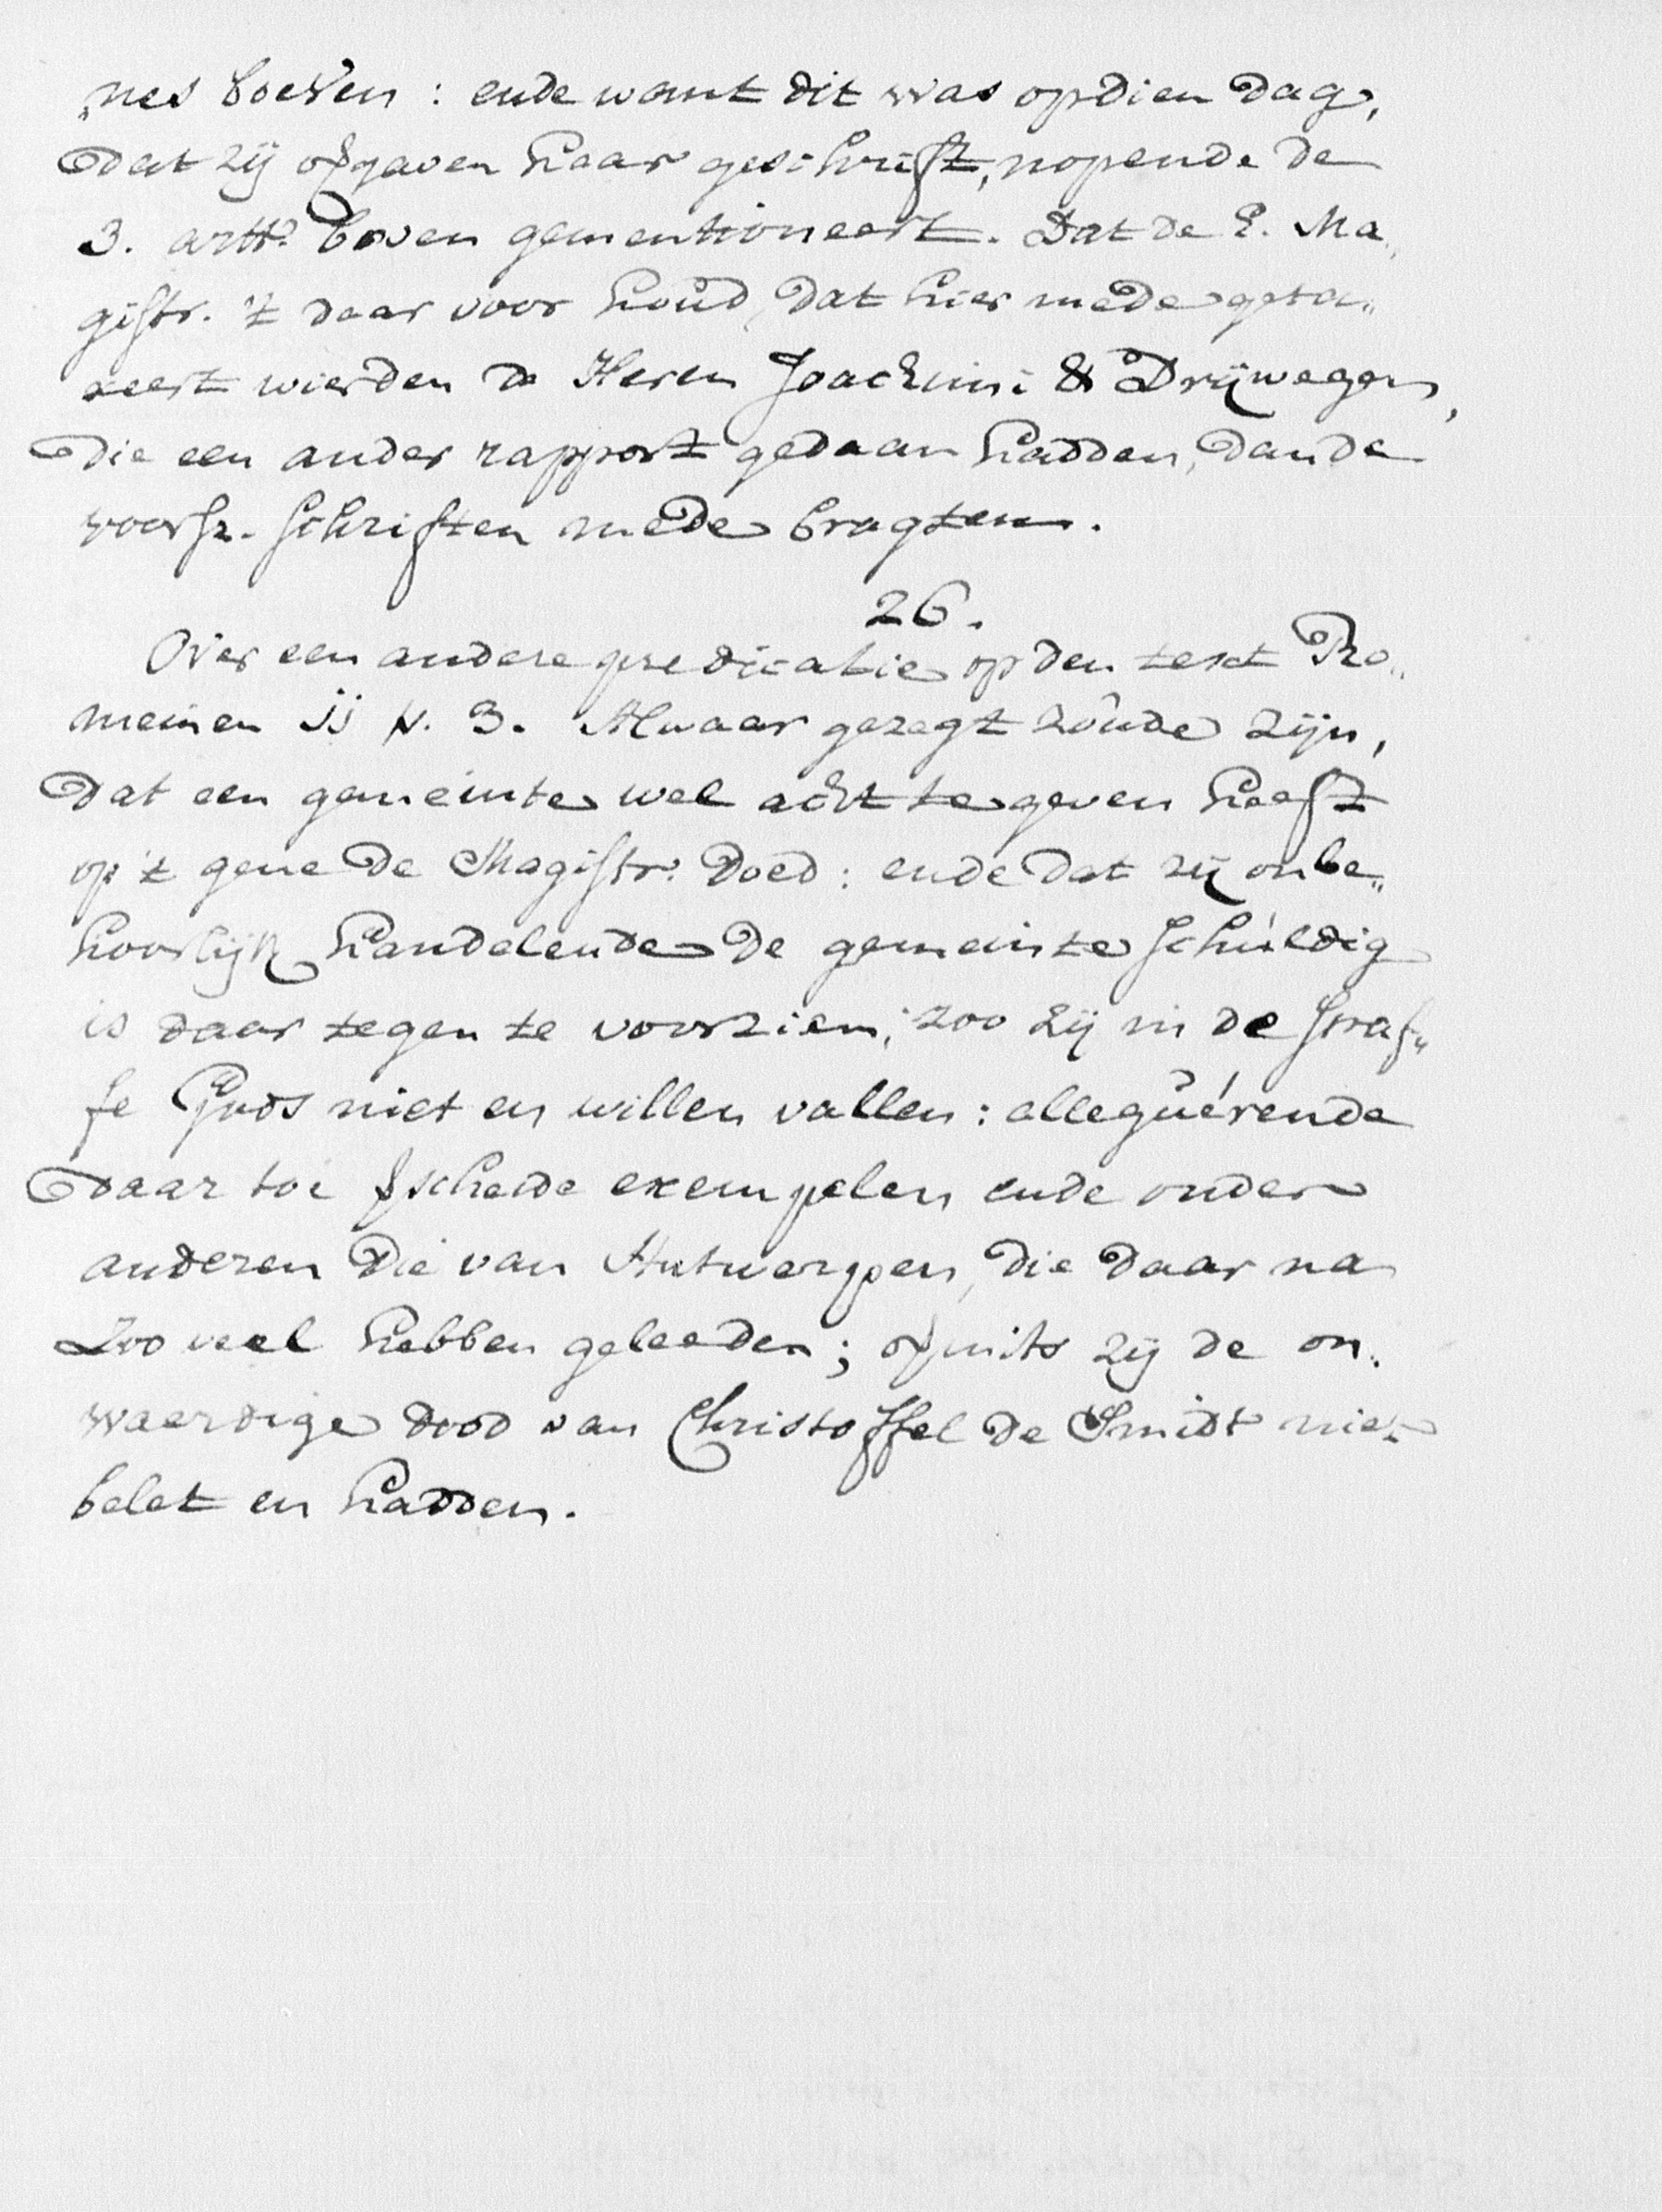 „nes boeven: ende want dit was op dien dag,
dat zij ofgaven haar geschrift, nopende de
3. artt. boven gementioneert. Dat de E. Ma„
gistr. 't daar voor houd, dat hier mede geta„
xeert wierden de Heren Joachimi & Drijwegen,
die een ander rapport gedaan hadden, dan de
voorsz. schriften mede bragten.
26.
Over een andere predicatie op den text Ro„
meinen ij v. 3. Alwaar gezegt zoude zijn,
dat een gemeinte wel acht te geven heeft
op 't gene de Magistr. doed: ende dat zij onbe„
hoorlijk handelende de gemeinte schuldig
is daar tegen te voorzien, zoo zij in de straf„
fe Gods niet en willen vallen: alleguérende
daar toe scheide exempelen ende onder
anderen die van Antwerpen, die daar na
zoo veel hebben geleeden; ofmits zij de on„
waerdige dood van Christoffel de Smidt niet
belet en hadden.